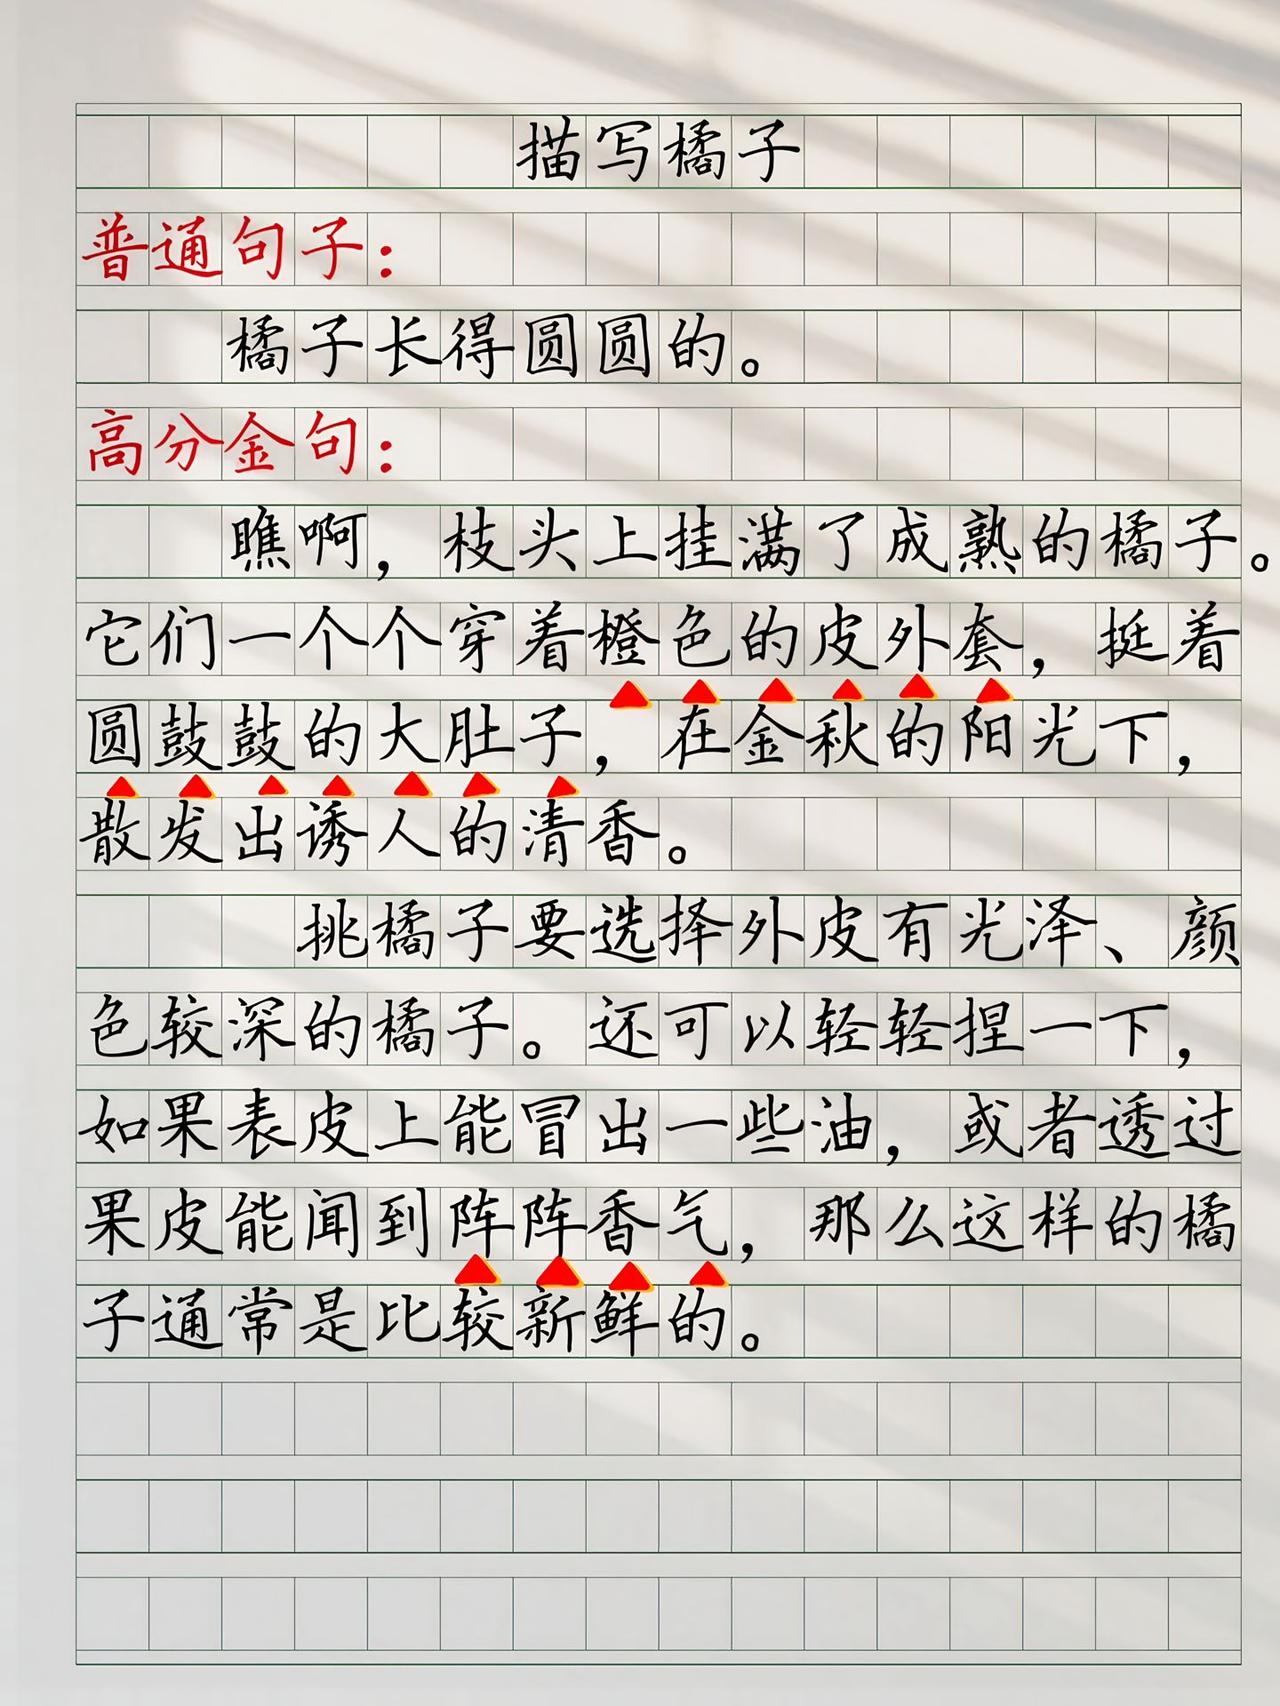 描写橘子
普通句子：
橘子长得圆圆的。
高分金句：
瞧啊，枝头上挂满了成熟的橘子。
它们一个个穿着橙色的皮外套，挺着
圆鼓鼓的大肚子，在金秋的阳光下，
散发出诱人的清香。
挑橘子要选择外皮有光泽、颜
色较深的橘子。还可以轻轻捏一下，
如果表皮上能冒出一些油，或者透过
果皮能闻到阵阵香气，那么这样的橘
子通常是比较新鲜的。